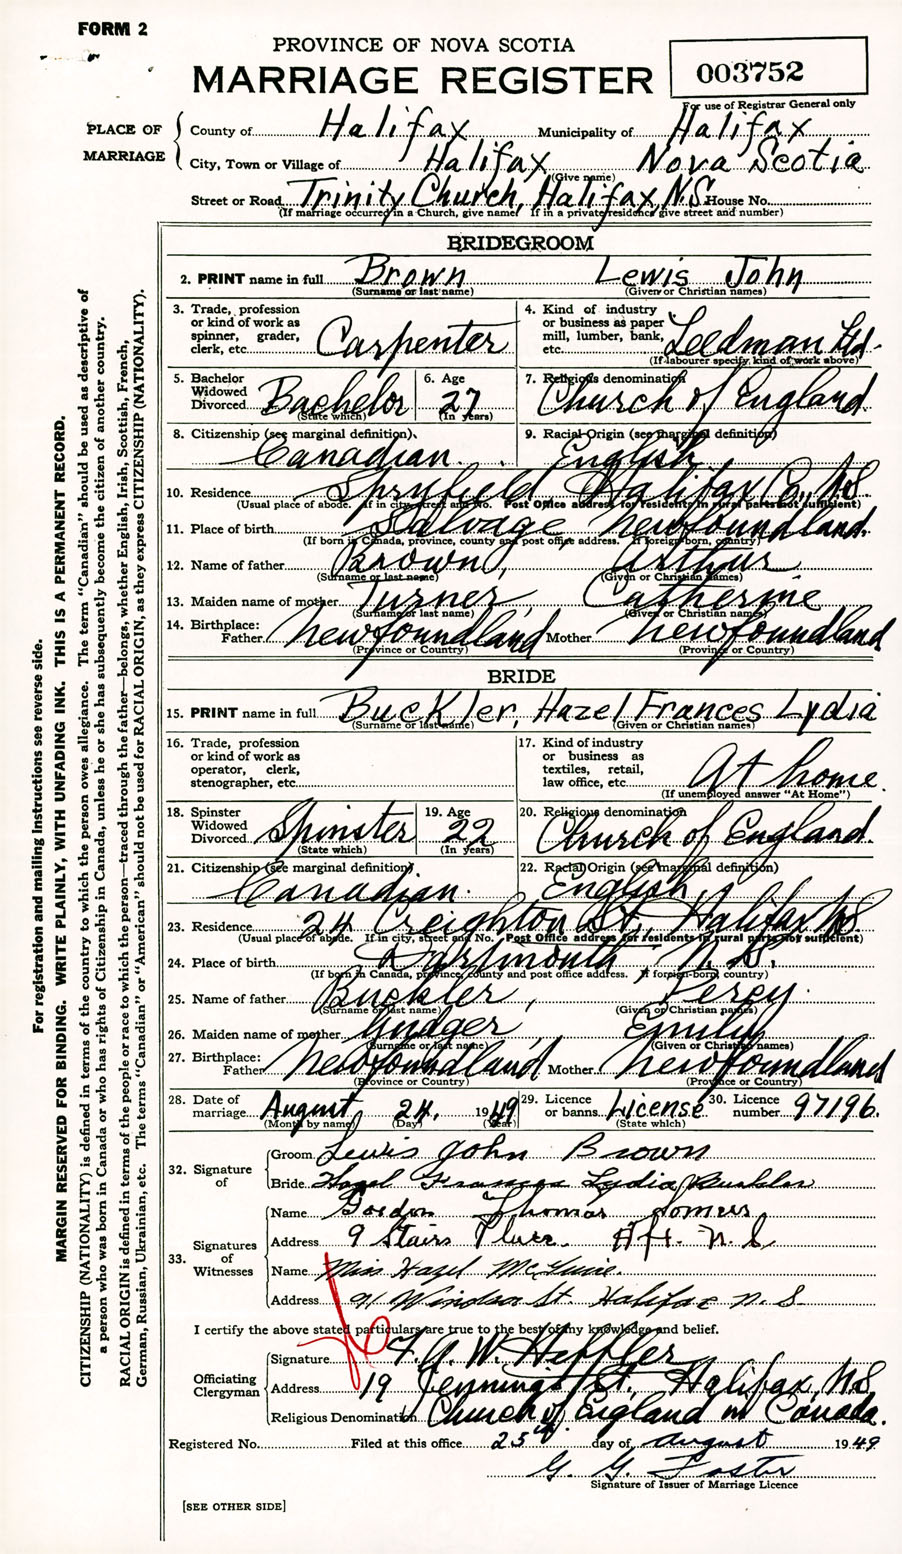 FORM 2
PROVINCE OF NOVA SCOTIA
MARRIAGE REGISTER
003752
For use of Registrar General only
PLACE OF MARRIAGE
County of Halifax Municipality of Halifax
City, Town or Village of Halifax Nova Scotia
(Give name)
Street or Road Trinity Church, Halifax, N.S. House No.
(If marriage occurred in a Church, give name If in a private residence give street and number)
BRIDEGROOM
2. PRINT name in full Brown Lewis John
(Surname or last name) (Given or Christian names)
3. Trade, profession or kind of work as spinner, grader, clerk, etc. Carpenter
4. Kind of industry or business as paper mill, lumber, bank, etc. Leedman Ltd.
(If labourer specify kind of work above)
5. Bachelor Widowed Divorced Bachelor
(State which)
6. Age 27
(In years)
7. Religious denomination Church of England
8. Citizenship (see marginal definition) Canadian
9. Racial Origin (see marginal definition) English
10. Residence Spryfield Halifax Co., N.S.
(Usual place of abode. If in city, street and No. Post Office address for residents in rural parts not sufficient)
11. Place of birth Salvage Newfoundland.
(If born in Canada, province, county and post office address. If foreign-born, country)
12. Name of father Brown, Arthur
(Surname or last name) (Given or Christian names)
13. Maiden name of mother Turner, Catherine
(Surname or last name) (Given or Christian names)
14. Birthplace: Father Newfoundland Mother Newfoundland
(Province or Country) (Province or Country)
BRIDE
15. PRINT name in full Buckler, Hazel Frances Lydia
(Surname or last name) (Given or Christian names)
16. Trade, profession or kind of work as operator, clerk, stenographer, etc.
17. Kind of industry or business as textiles, retail, law office, etc. At home.
(If unemployed answer "At Home")
18. Spinster Widowed Divorced Spinster
(State which)
19. Age 22
(In years)
20. Religious denomination Church of England.
21. Citizenship (see marginal definition) Canadian.
22. Racial Origin (see marginal definition) English
23. Residence 24 Creighton St., Halifax N.S.
(Usual place of abode. If in city, street and No. Post Office address for residents in rural parts not sufficient)
24. Place of birth Dartmouth N.S.
(If born in Canada, province, county and post office address. If foreign-born, country)
25. Name of father Buckler, Percy.
(Surname or last name) (Given or Christian names)
26. Maiden name of mother Emily
(Surname or last name) (Given or Christian names)
27. Birthplace: Father Newfoundland Mother Newfoundland
(Province or Country) (Province or Country)
28. Date of marriage August 24, 1949
(Month by name) (Day) (Year)
29. Licence or banns License
(State which)
30. Licence number 97196.
32. Signature of
Groom Lewis John Brown
Bride Hazel Frances Lydia Buckler
33. Signatures of Witnesses
Name Gordon Thomas Somers
Address 9 Stairs Place Hfx. N.S.
Name Miss Hazel McGuire.
Address 91 Windsor St. Halifax N.S.
I certify the above stated particulars are true to the best of my knowledge and belief.
Officiating Clergyman
Signature
Address 19 Jennings St., Halifax, N.S.
Religious Denomination Church of England in Canada.
Registered No. Filed at this office 25th day of August 1949
G. G. Foster
Signature of Issuer of Marriage Licence
[SEE OTHER SIDE]
For registration and mailing instructions see reverse side.
MARGIN RESERVED FOR BINDING. WRITE PLAINLY, WITH UNFADING INK. THIS IS A PERMANENT RECORD.
CITIZENSHIP (NATIONALITY) is defined in terms of the country to which the person owes allegiance. The term "Canadian" should be used as descriptive of
a person who was born in Canada or who has rights of Citizenship in Canada, unless he or she has subsequently become the citizen of another country.
RACIAL ORIGIN is defined in terms of the people or race to which the person—traced through the father—belongs, whether English, Irish, Scottish, French,
German, Russian, Ukrainian, etc. The terms "Canadian" or "American" should not be used for RACIAL ORIGIN, as they express CITIZENSHIP (NATIONALITY).